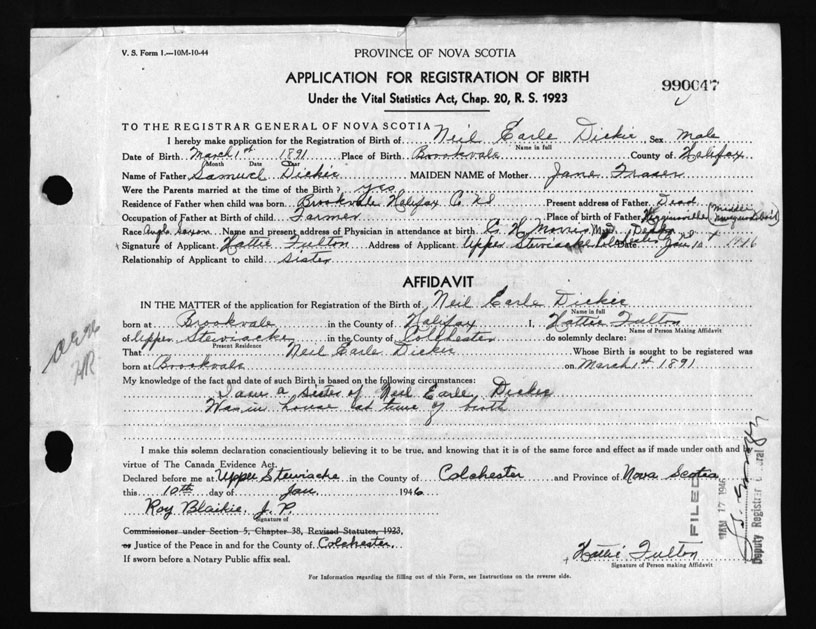 V. S. Form 1.—10M-10-44
PROVINCE OF NOVA SCOTIA
APPLICATION FOR REGISTRATION OF BIRTH
990047
Under the Vital Statistics Act, Chap. 20, R. S. 1923
TO THE REGISTRAR GENERAL OF NOVA SCOTIA
I hereby make application for the Registration of Birth of Neil Earle Dickie Sex Male
Name in full
Date of Birth March 1st 1891 Place of Birth Brookvale County of Halifax
Month Date Year
Name of Father Samuel Dickie MAIDEN NAME of Mother Jane Fraser
Were the Parents married at the time of the Birth? yes
Residence of Father when child was born Brookvale Halifax Co. N.S Present address of Father Dead
Occupation of Father at Birth of child Farmer Place of birth of Father Higginsville (Middle Musquodoboit)
Race Anglo Saxon Name and present address of Physician in attendance at birth C. H. Morris M.D.
Signature of Applicant Hattie Fulton Address of Applicant Upper Stewiacke Colchester N.S Date Jan 10 1946
Relationship of Applicant to child sister
AFFIDAVIT
IN THE MATTER of the application for Registration of the Birth of Neil Earle Dickie
Name in full
born at Brookvale in the County of Halifax I, Hattie Fulton
Name of Person Making Affidavit
of Upper Stewiacke in the County of Colchester do solemnly declare:
Present Residence
That Neil Earle Dickie Whose Birth is sought to be registered was
born at Brookvale on March 1st 1891
My knowledge of the fact and date of such Birth is based on the following circumstances:
I am a sister of Neil Earle Dickie
Was in house at time of birth
I make this solemn declaration conscientiously believing it to be true, and knowing that it is of the same force and effect as if made under oath and by
virtue of The Canada Evidence Act.
Declared before me at Upper Stewiacke in the County of Colchester and Province of Nova Scotia
this 10th day of Jan 1946
Roy Blaikie, J. P.
Signature of
Commissioner under Section 5, Chapter 38, Revised Statutes, 1923,
or Justice of the Peace in and for the County of Colchester
If sworn before a Notary Public affix seal.
Hattie Fulton
Signature of Person making Affidavit
For Information regarding the filling out of this Form, see Instructions on the reverse side.
FILED
JAN 17 1946
Deputy Registrar General